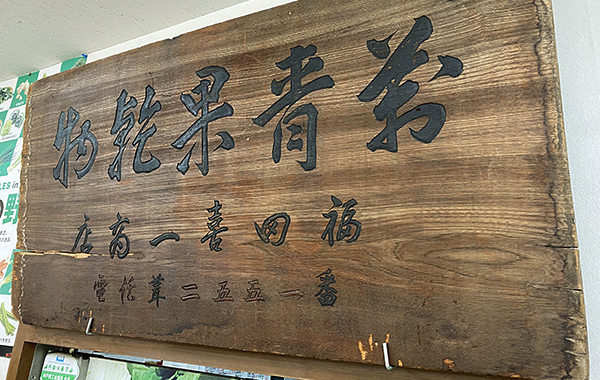 萬青果乾物
福田喜一商店
電話葺二五五一番
LES in
野